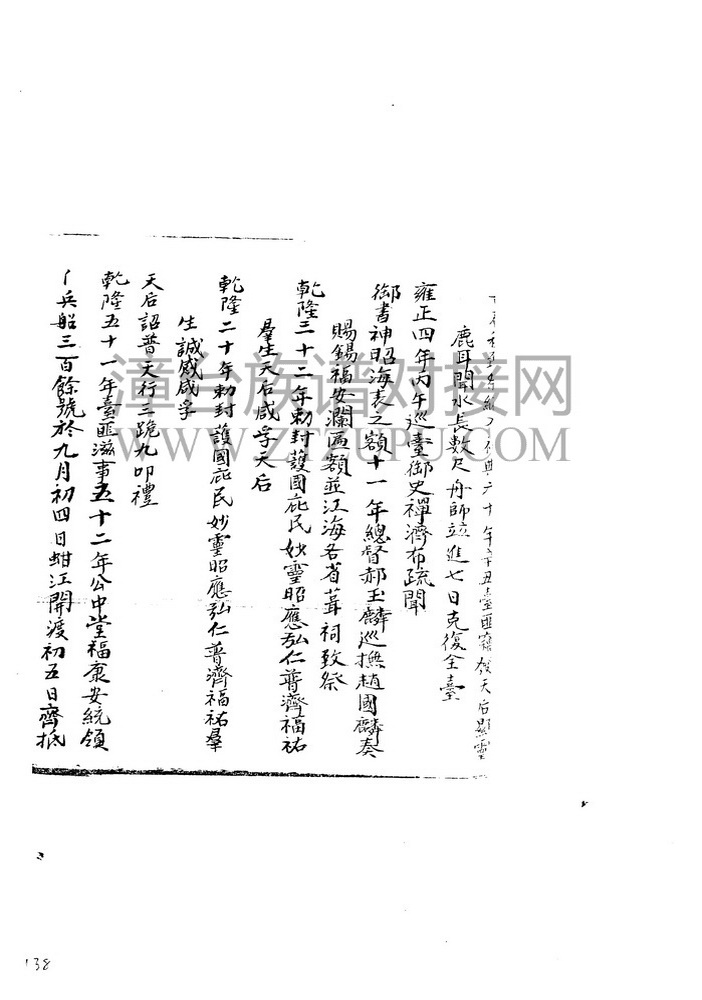 六十年辛丑臺匪竊發天后顯靈
鹿耳門水長數尺舟師竝進七日克復全臺
雍正四年丙午巡臺御史禪濟布疏聞
御書神昭海表之額十一年總督郝玉麟巡撫趙國麟奏
賜錫福安瀾匾額並江海各省葺祠致祭
乾隆二十二年勅封護國庇民妙靈昭應弘仁普濟福祐
羣生天后咸孚天后
乾隆二十年勅封護國庇民妙靈昭應弘仁普濟福祐羣
生誠感咸孚
天后詔普天行三跪九叩禮
乾隆五十一年臺匪滋事五十二年公中堂福康安統領
兵船三百餘號於九月初四日蚶江開渡初五日齊抵
138
漳台族谱对接网
WWW.ZTZUPU.COM